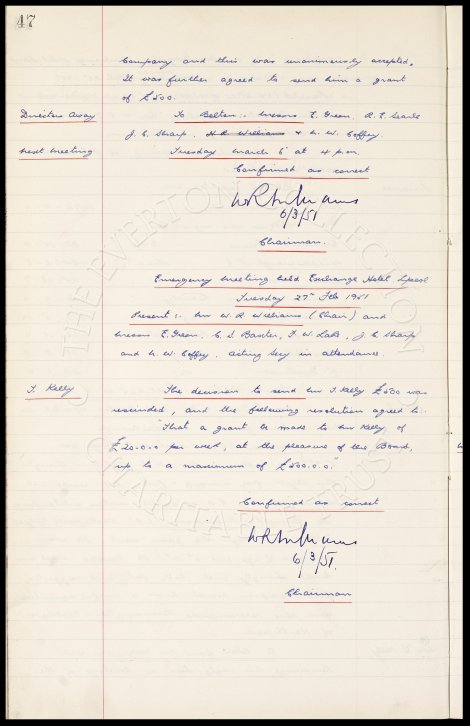 47
Company and this was unanimously accepted.
It was further agreed to send him a grant
of £500.
Directors Away To Bolton :- Messrs E. Green, R. E. Searle
J. C. Sharp, H. R. Williams & N. W. Coffey.
next meeting Tuesday March 6th at 4 p.m.
Confirmed as correct
W R Williams
6/3/51
Chairman.
Emergency Meeting held Exchange Hotel Lpool
Tuesday 27th Feb 1951
Present :- Mr W. R. Williams (Chair) and
Messrs E. Green, C. S. Baxter, F. W. Lake, J. C. Sharp
and N. W. Coffey. Acting Secy in attendance.
T. Kelly The decision to send Mr T. Kelly £500 was
rescinded, and the following resolution agreed to :-
"That a grant be made to Mr Kelly of
£20-0-0 per week, at the pleasure of the Board,
up to a maximum of £500.0.0."
Confirmed as correct
W R Williams
6/3/51.
Chairman
© THE EVERTON COLLECTION CHARITABLE TRUST